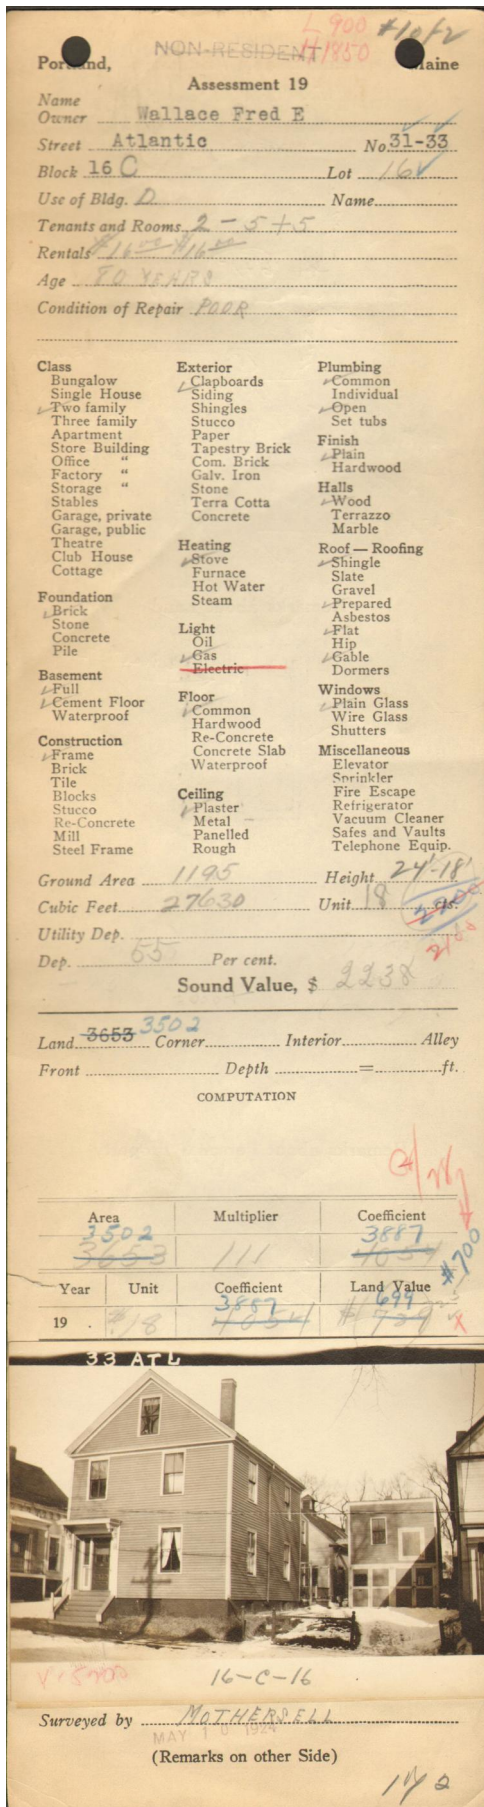 L 900 #1 of 2
NON-RESIDENT H1850
Portland, Maine
Assessment 19
Name
Owner Wallace Fred E
Street Atlantic No. 31-33
Block 16 C Lot 16
Use of Bldg. D Name
Tenants and Rooms 2 - 5 + 5
Rentals $16.00 $16.00
Age 80 YEARS
Condition of Repair POOR
Class
Bungalow
Single House
Two family
Three family
Apartment
Store Building
Office "
Factory "
Storage "
Stables
Garage, private
Garage, public
Theatre
Club House
Cottage
Foundation
Brick
Stone
Concrete
Pile
Basement
Full
Cement Floor
Waterproof
Construction
Frame
Brick
Tile
Blocks
Stucco
Re-Concrete
Mill
Steel Frame
Exterior
Clapboards
Siding
Shingles
Stucco
Paper
Tapestry Brick
Com. Brick
Galv. Iron
Stone
Terra Cotta
Concrete
Heating
Stove
Furnace
Hot Water
Steam
Light
Oil
Gas
Electric
Floor
Common
Hardwood
Re-Concrete
Concrete Slab
Waterproof
Ceiling
Plaster
Metal
Panelled
Rough
Plumbing
Common
Individual
Open
Set tubs
Finish
Plain
Hardwood
Halls
Wood
Terrazzo
Marble
Roof — Roofing
Shingle
Slate
Gravel
Prepared
Asbestos
Flat
Hip
Gable
Dormers
Windows
Plain Glass
Wire Glass
Shutters
Miscellaneous
Elevator
Sprinkler
Fire Escape
Refrigerator
Vacuum Cleaner
Safes and Vaults
Telephone Equip.
Ground Area 1195 Height 24'-18'
Cubic Feet 27630 Unit 18 cts.
Utility Dep. 2100
Dep. 55 Per cent.
Sound Value, $ 2238
Land 3653 3502 Corner Interior Alley
Front Depth = ft.
COMPUTATION
Area Multiplier Coefficient
3502 3887
3653 111 4054
#700
Year Unit Coefficient Land Value
3887 699
19 . #18 4054 #729
33 ATL
16-C-16
Surveyed by MOTHERSELL
MAY 10 1924
(Remarks on other Side)
1 of 2